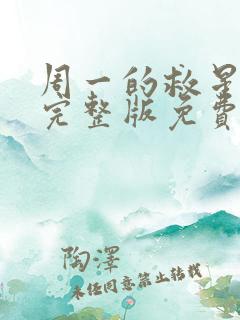 周一的救星
完整版免费
陶泽
未经同意禁止转载